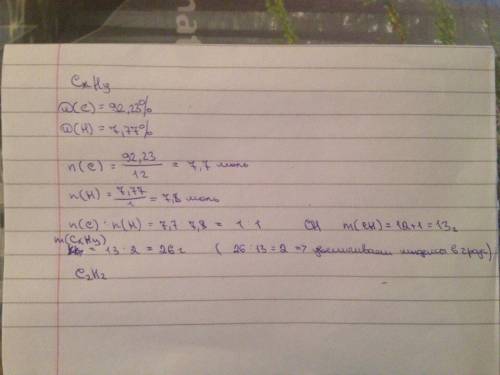 CxHy
ω(C) = 92,23%
ω(H) = 7,77%
n(C) = 92,23/12 = 7,7 моль
n(H) = 7,77/1 = 7,8 моль
n(C) : n(H) = 7,7 : 7,8 = 1 : 1 CH m(CH) = 12+1 = 13г
m(CxHy) = 13 · 2 = 26г ( 26 : 13 = 2 => увеличиваем индексы в 2 раза)
C2H2